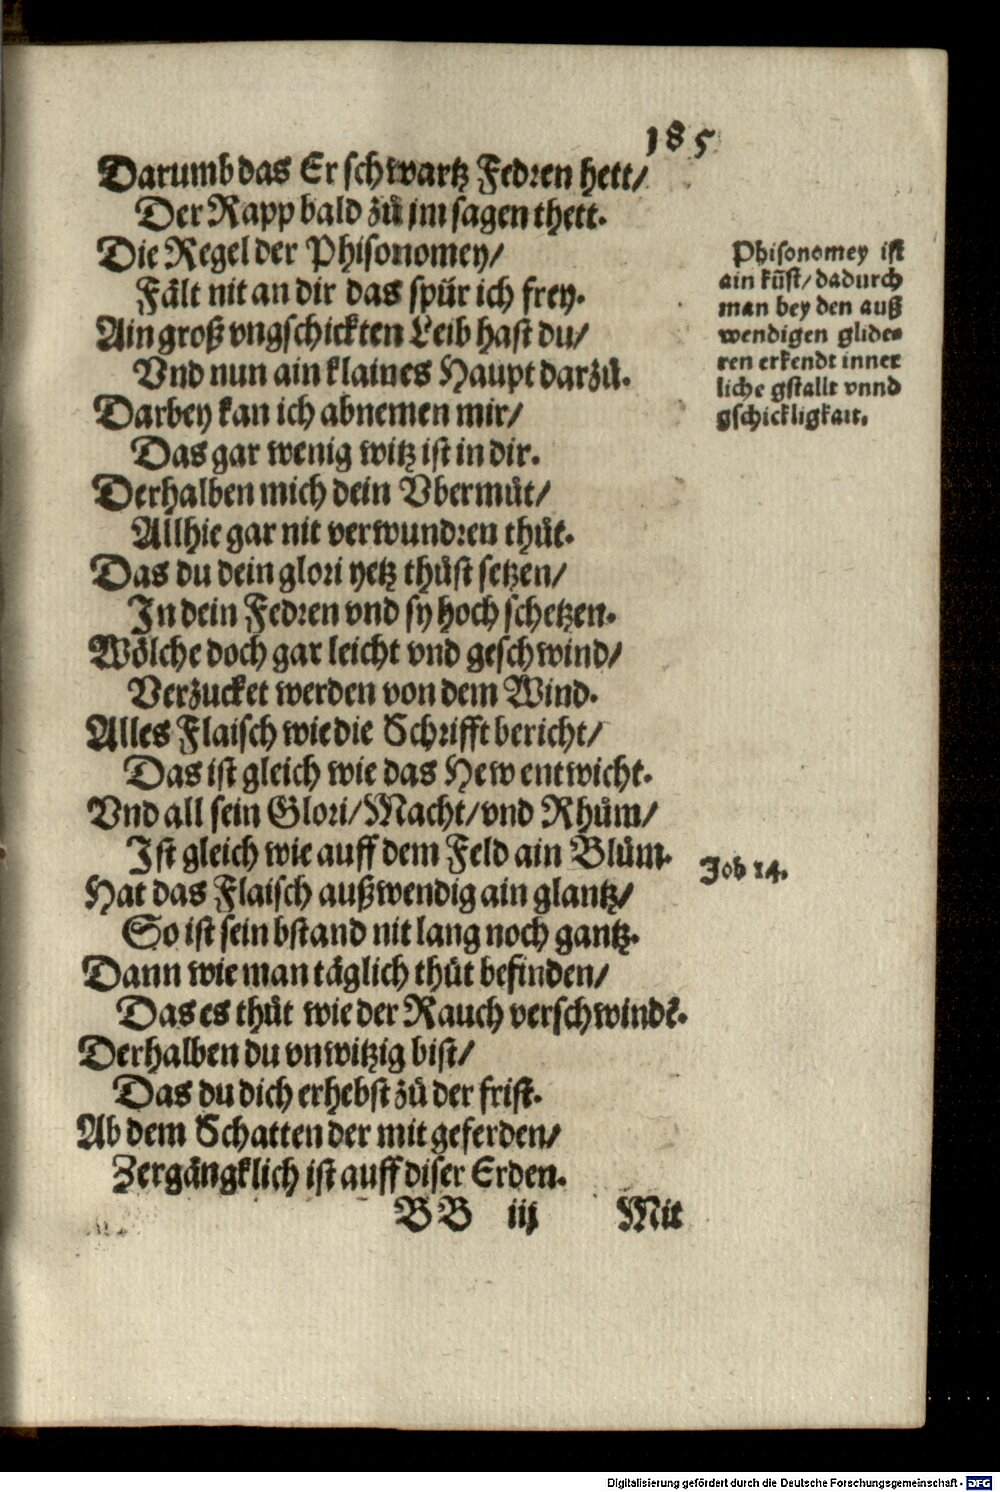 185
Darumb das Er schwartz Fedren hett/
Der Rapp bald zů jm sagen thett.
Die Regel der Phisonomey/
Fält nit an dir das spür ich frey.
Ain groß vngschickten Leib hast du/
Vnd nun ain klaines Haupt darzů.
Darbey kan ich abnemen mir/
Das gar wenig witz ist in dir.
Derhalben mich dein Vbermůt/
Allhie gar nit verwundren thůt.
Das du dein glori yetz thůst setzen/
In dein Fedren vnd sy hoch schetzen.
Wölche doch gar leicht vnd geschwind/
Verzucket werden von dem Wind.
Alles Flaisch wie die Schrifft bericht/
Das ist gleich wie das Hew entwicht.
Vnd all sein Glori/Macht/vnd Rhům/
Ist gleich wie auff dem Feld ain Blům.
Hat das Flaisch außwendig ain glantz/
So ist sein bstand nit lang noch gantz.
Dann wie man täglich thůt befinden/
Das es thůt wie der Rauch verschwindẽ.
Derhalben du vnwitzig bist/
Das du dich erhebst zů der frist.
Ab dem Schatten der mit geferden/
Zergängklich ist auff diser Erden.
BB iij Mit
Phisonomey ist
ain kũst/dadurch
man bey den auß
wendigen glide=
ren erkendt inner
liche gstallt vnnd
gschickligkait.
Job 14.
Digitalisierung gefördert durch die Deutsche Forschungsgemeinschaft - DFG